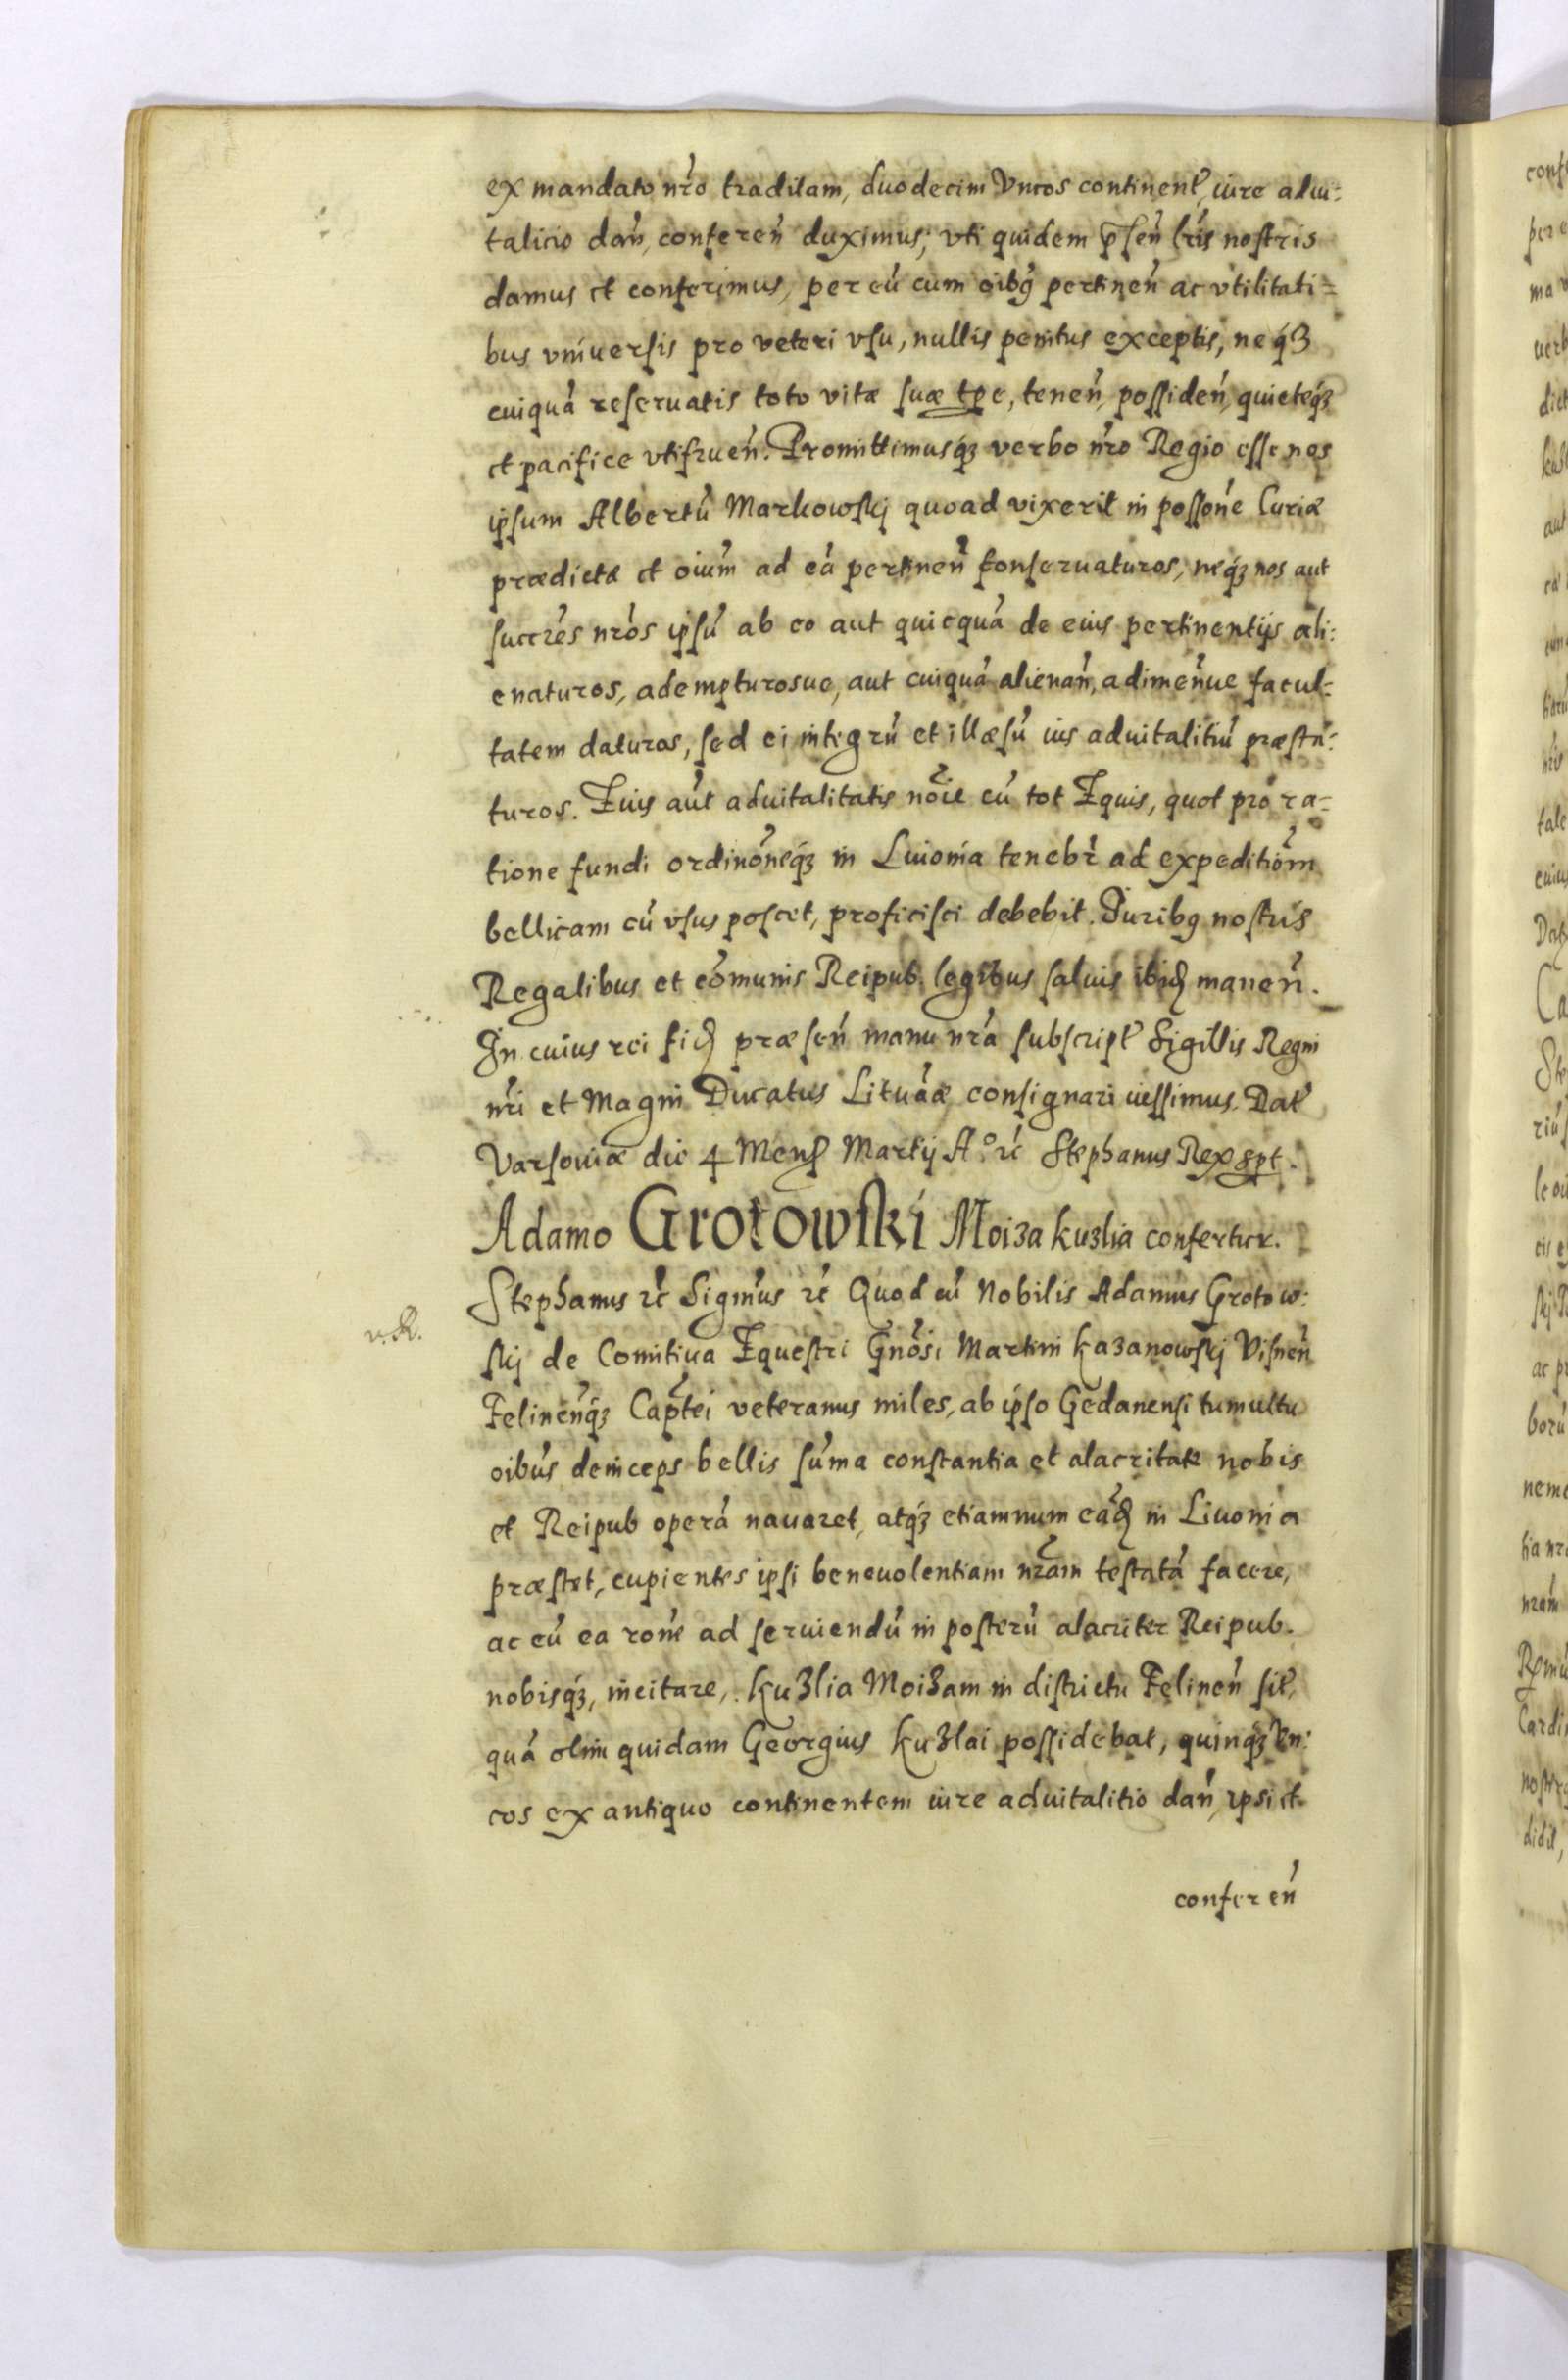 ex mandato nr̃o traditam, duodecim Vncos continent̃, iure aduitalicio
talicio dañ, confereñ duximus; vti quidem p̃señ lr̃is nostris
damus et conferimus, per eũ cum oibꝫ pertineñ ac vtilitati=
bus vniuersis pro veteri vsu, nullis penitus exceptis, neqꝫ
cuiquã reseruatis toto vitæ suæ tp̃e, teneñ, possideñ, quieteqꝫ
et pacifice vtifrueñ. Promittimusqꝫ verbo nr̃o Regio esse nos
ipsum Albertũ Markowskj quoad vixerit in possõne Curiæ
prædictæ et oium̃ ad eã pertineñ conseruaturos, neqꝫ nos aut
succr̃es nr̃os ipsũ ab eo aut quicquã de eius pertinentijs ali:
enaturos, adempturosue, aut cuiquã alienañ, adimeñue facul:
tatem daturos, sed ei integrũ et illæsũ ius aduitalitiũ præsta:
turos. Eius aũt aduitalitatis nõie cũ tot Equis, quot pro ra:
tione fundi ordinõneqꝫ in Liuonia tenebr̃ ad expeditiõm
bellicam cũ vsus poscet, proficisci debebit. Juribꝫ nostris
Regalibus et cõmunis Reipub. legibus saluis ibid manen̄.
In cuius rei fid præseñ manu nr̃a subscript̃ Sigillis Regni
nr̃i et Magni Ducatus Lituãæ consignari iussimus. Dat̃
Varsouiæ die 4 Mens Martij A.º ꝛc̃ Stephanus Rex spt.
Adamo Grotowski Moiza kuzlia confertur.
Stephanus ꝛc̃ Sigñus ꝛc̃ Quod cũ Nobilis Adamus Grotow:
v. R.
skj de Comitiua Equestri Gnõsi Martini Kazanowskj Visneñ
Felineñqꝫ Captẽi veteranus miles, ab ipso Gedanensi tumultu
oibũs deinceps bellis sũma constantia et alacritate nobis
et Reipub operã nauaret, atqꝫ etiamnum eãd in Liuonia
præstet, cupientes ipsi beneuolentiam nrãm testatã facere,
ac eũ ea rõne ad seruiendũ in posterũ alacriter Reipub.
nobisqꝫ, incitare, Kuzlia Moizam in districtu Felineñ sit̃,
quã olim quidam Georgius Kuzlai possidebat, quinqꝫ Vn:
cos ex antiquo continentem iure aduitalitio dañ, ipsi et
confereñ